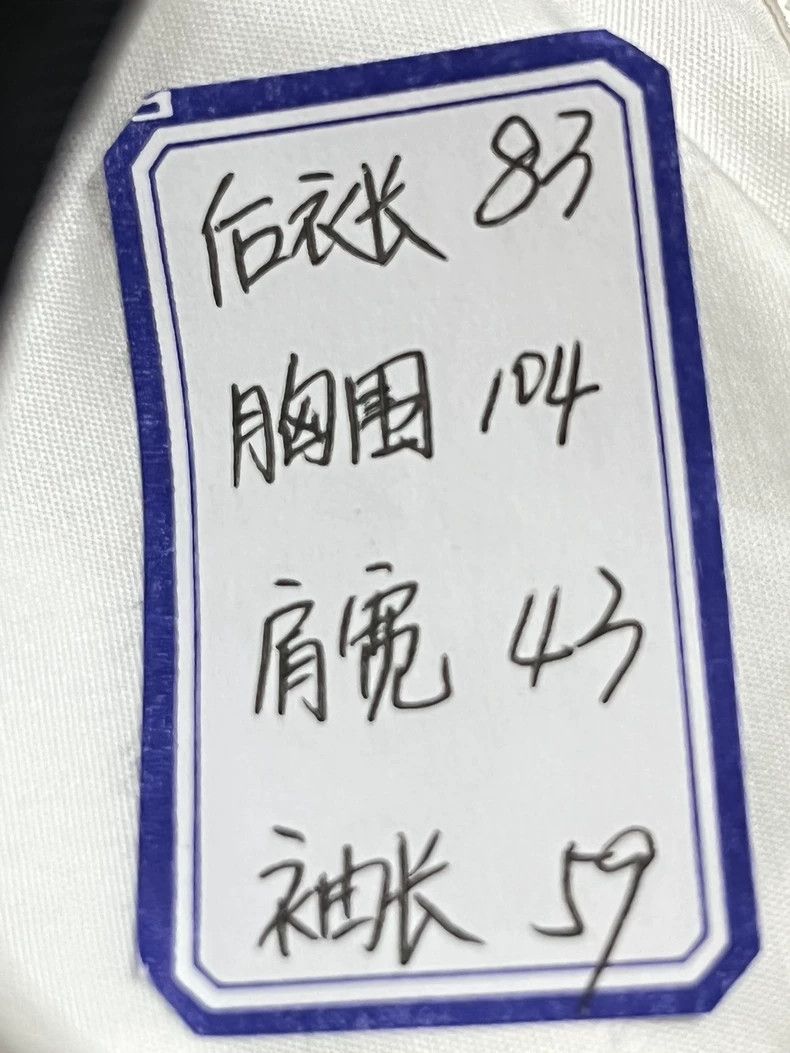 后衣长 83
胸围 104
肩宽 43
袖长 59